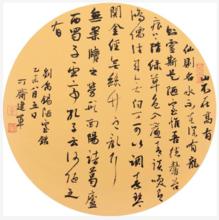 山不在高有
仙則名水不在深有龍
則靈斯是陋室惟吾德馨苔
痕上階綠草色入簾青談笑有
鴻儒往來無白丁可以調素琴
閱金經無絲竹之亂耳
無案牘之勞形南陽諸葛廬
西蜀子雲亭孔子云何陋之
有
劉禹錫陋室銘
八月五日
齋建軍